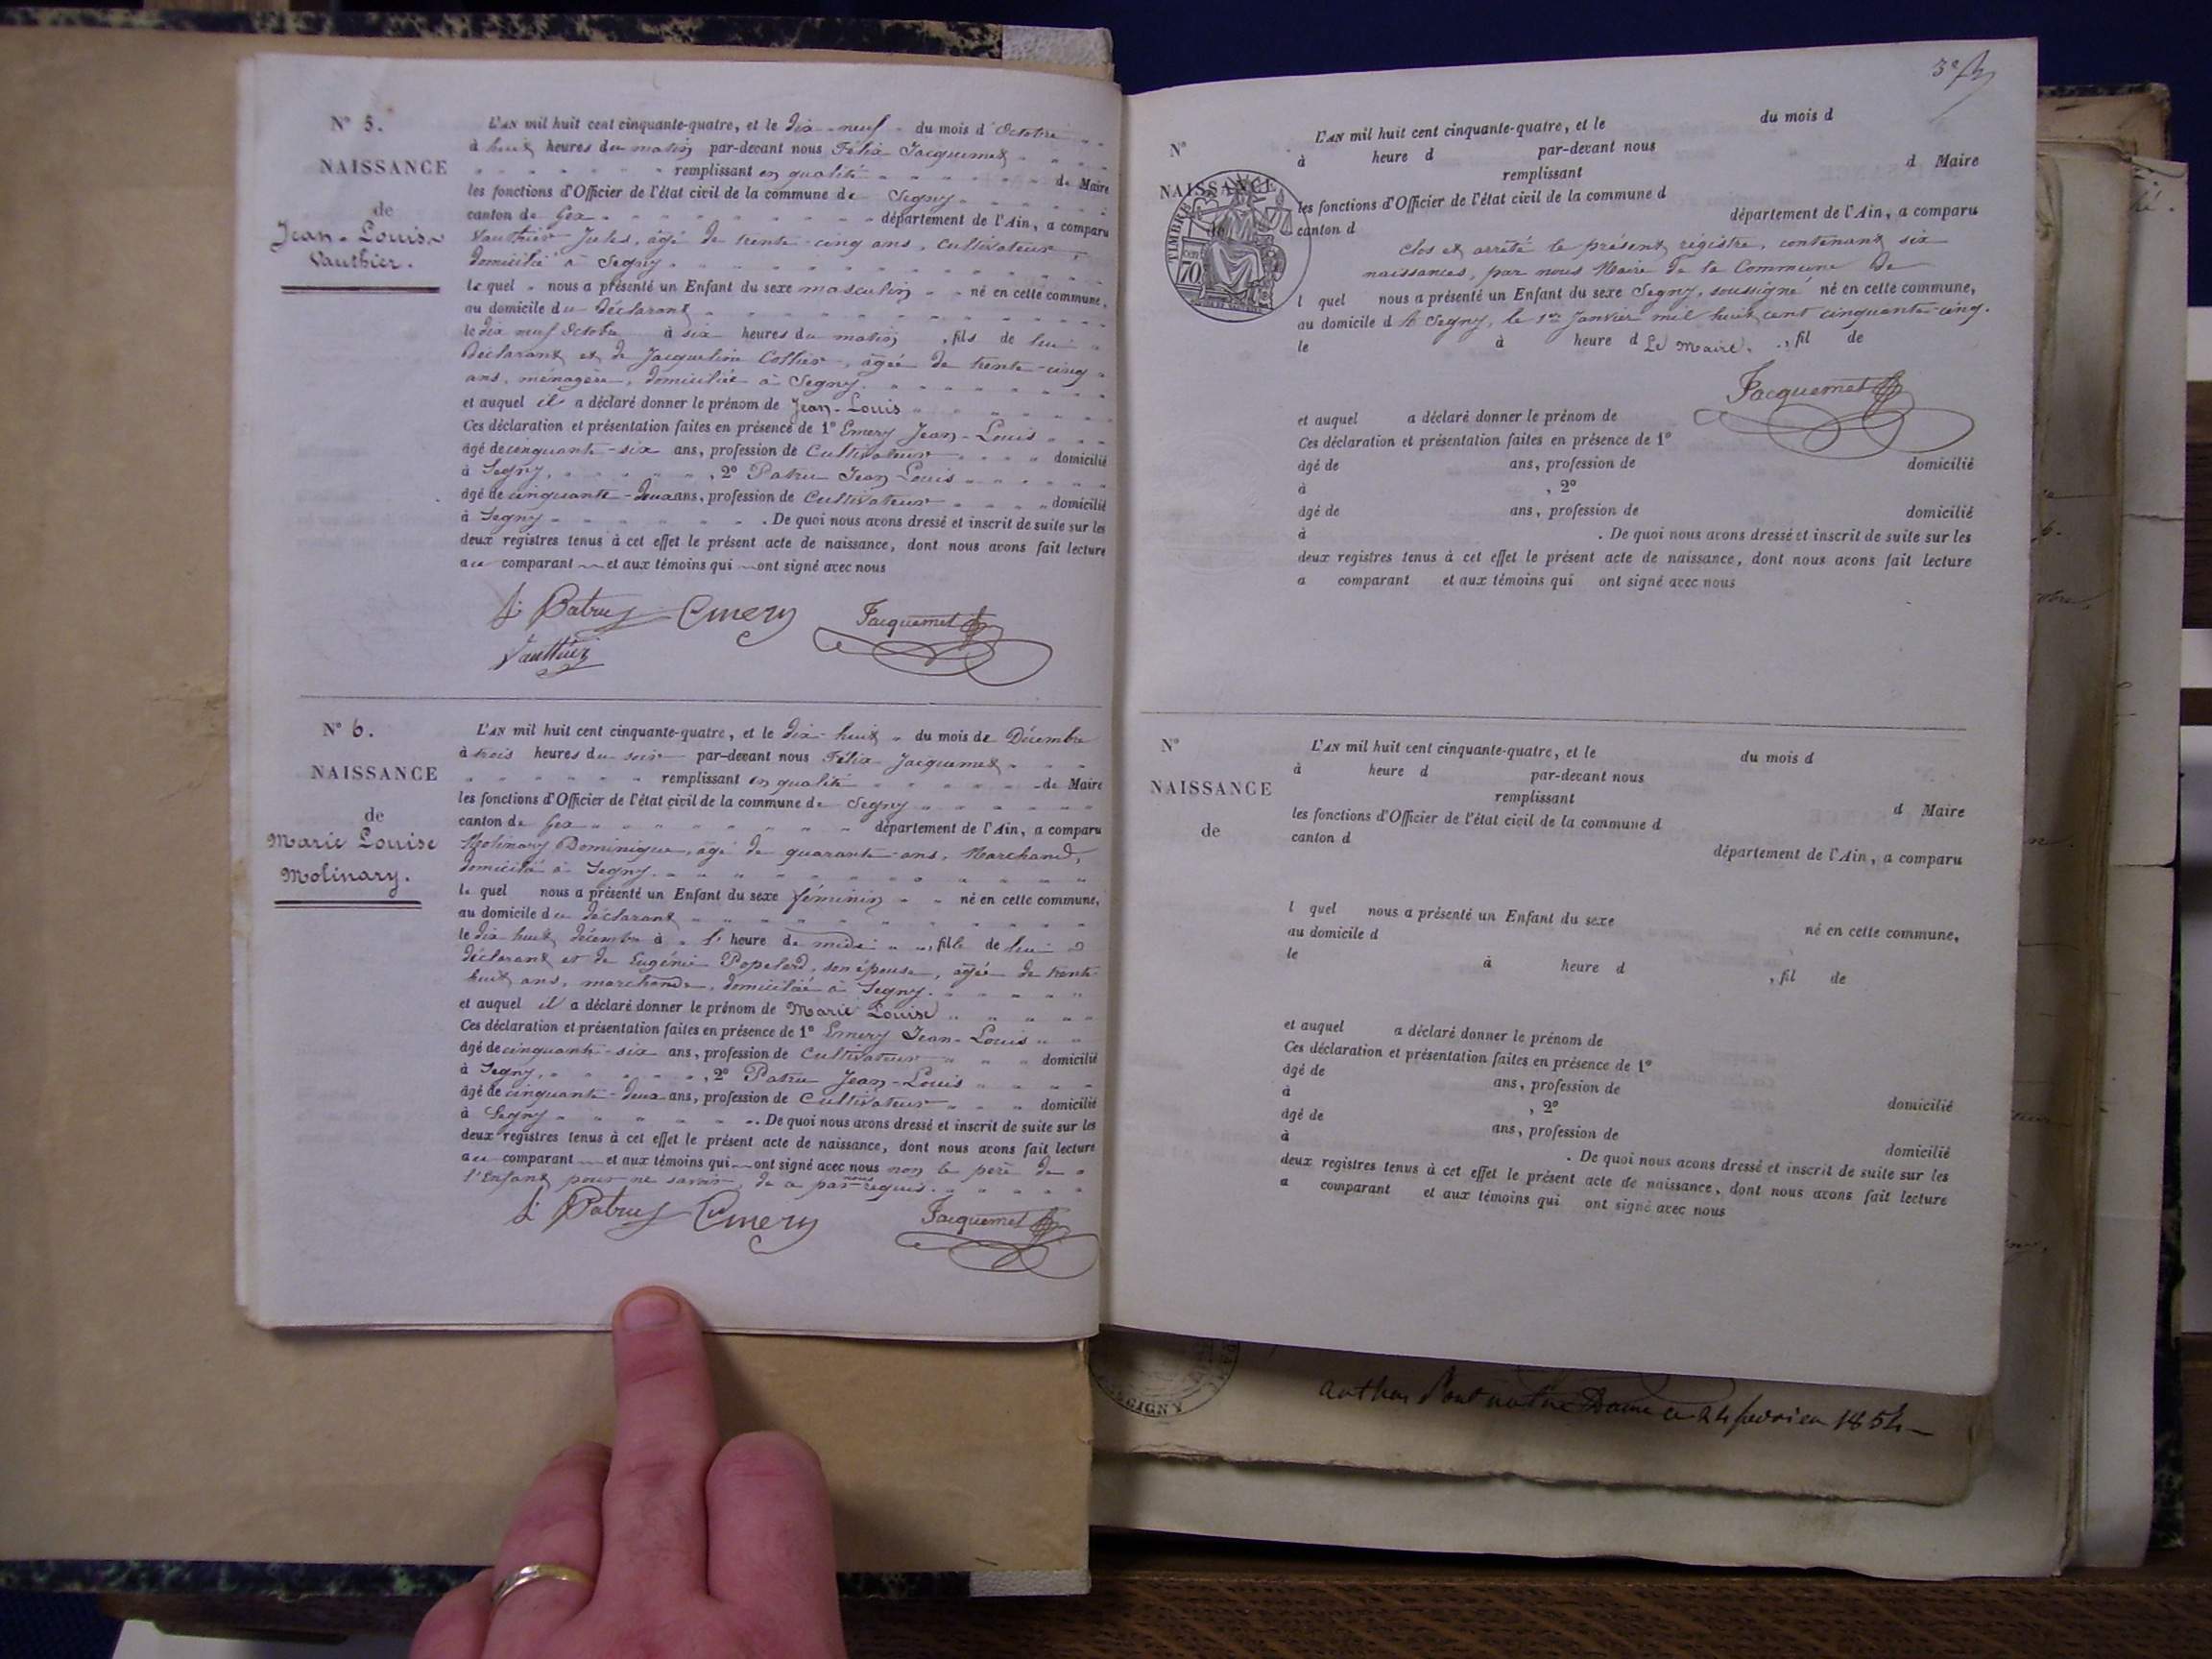 N° 5.
NAISSANCE
de
Jean-Louis
Vauthier.
L'AN mil huit cent cinquante-quatre, et le dix-neuf du mois d'Octobre
à huit heures du matin par-devant nous Félix Jacquemet
remplissant en qualité de Maire
les fonctions d'Officier de l'état civil de la commune de Segny
canton de Gex département de l'Ain, a comparu
Vauthier Jules, âgé de trente-cinq ans, cultivateur,
domicilié à Segny.
lequel nous a présenté un Enfant du sexe masculin né en cette commune,
au domicile du déclarant
le dix neuf Octobre à six heures du matin, fils de lui
déclarant et de Jacqueline Collier, âgée de trente-cinq
ans, ménagère, domiciliée à Segny.
et auquel il a déclaré donner le prénom de Jean-Louis
Ces déclaration et présentation faites en présence de 1° Emery Jean-Louis
âgé de cinquante-six ans, profession de Cultivateur domicilié
à Segny, 2° Patru Jean Louis
âgé de cinquante-deux ans, profession de Cultivateur domicilié
à Segny. De quoi nous avons dressé et inscrit de suite sur les
deux registres tenus à cet effet le présent acte de naissance, dont nous avons fait lecture
au comparant et aux témoins qui ont signé avec nous
Patru Emery Jacquemet
Vauthier
N° 6.
NAISSANCE
de
Marie Louise
Molinary.
L'AN mil huit cent cinquante-quatre, et le dix-huit du mois de Décembre
à trois heures du soir par-devant nous Félix Jacquemet
remplissant en qualité de Maire
les fonctions d'Officier de l'état civil de la commune de Segny
canton de Gex département de l'Ain, a comparu
Molinary Dominique, âgé de quarante ans, Marchand,
domicilié à Segny.
lequel nous a présenté un Enfant du sexe féminin né en cette commune,
au domicile du déclarant
le dix huit décembre à l'heure de midi, fille de lui
déclarant et de Eugénie Popelard, son épouse, âgée de trente
huit ans, marchande, domiciliée à Segny.
et auquel il a déclaré donner le prénom de Marie Louise
Ces déclaration et présentation faites en présence de 1° Emery Jean-Louis
âgé de cinquante-six ans, profession de Cultivateur domicilié
à Segny, 2° Patru Jean-Louis
âgé de cinquante-deux ans, profession de Cultivateur domicilié
à Segny. De quoi nous avons dressé et inscrit de suite sur les
deux registres tenus à cet effet le présent acte de naissance, dont nous avons fait lecture
au comparant et aux témoins qui ont signé avec nous non le père de
l'Enfant pour ne savoir, de ce par nous requis.
Patru Emery Jacquemet
3e
N°
NAISSANCE
TIMBRE
70
L'AN mil huit cent cinquante-quatre, et le du mois d
à heure d par-devant nous
remplissant d Maire
les fonctions d'Officier de l'état civil de la commune d
canton d département de l'Ain, a comparu
Clos et arrêté le présent registre, contenant six
naissances, par nous Maire de la Commune de
l quel nous a présenté un Enfant du sexe Segny, soussigné né en cette commune,
au domicile d A Segny, le 1er Janvier mil huit cent cinquante-cinq.
le à heure d Le Maire. , fil de
Jacquemet
et auquel a déclaré donner le prénom de
Ces déclaration et présentation faites en présence de 1°
âgé de ans, profession de domicilié
à , 2°
âgé de ans, profession de domicilié
à . De quoi nous avons dressé et inscrit de suite sur les
deux registres tenus à cet effet le présent acte de naissance, dont nous avons fait lecture
a comparant et aux témoins qui ont signé avec nous
N°
NAISSANCE
de
L'AN mil huit cent cinquante-quatre, et le du mois d
à heure d par-devant nous
remplissant d Maire
les fonctions d'Officier de l'état civil de la commune d
canton d département de l'Ain, a comparu
l quel nous a présenté un Enfant du sexe né en cette commune,
au domicile d
le à heure d , fil de
et auquel a déclaré donner le prénom de
Ces déclaration et présentation faites en présence de 1°
âgé de ans, profession de domicilié
à , 2°
âgé de ans, profession de domicilié
à . De quoi nous avons dressé et inscrit de suite sur les
deux registres tenus à cet effet le présent acte de naissance, dont nous avons fait lecture
a comparant et aux témoins qui ont signé avec nous
Dame ce 24 fevrier 1854